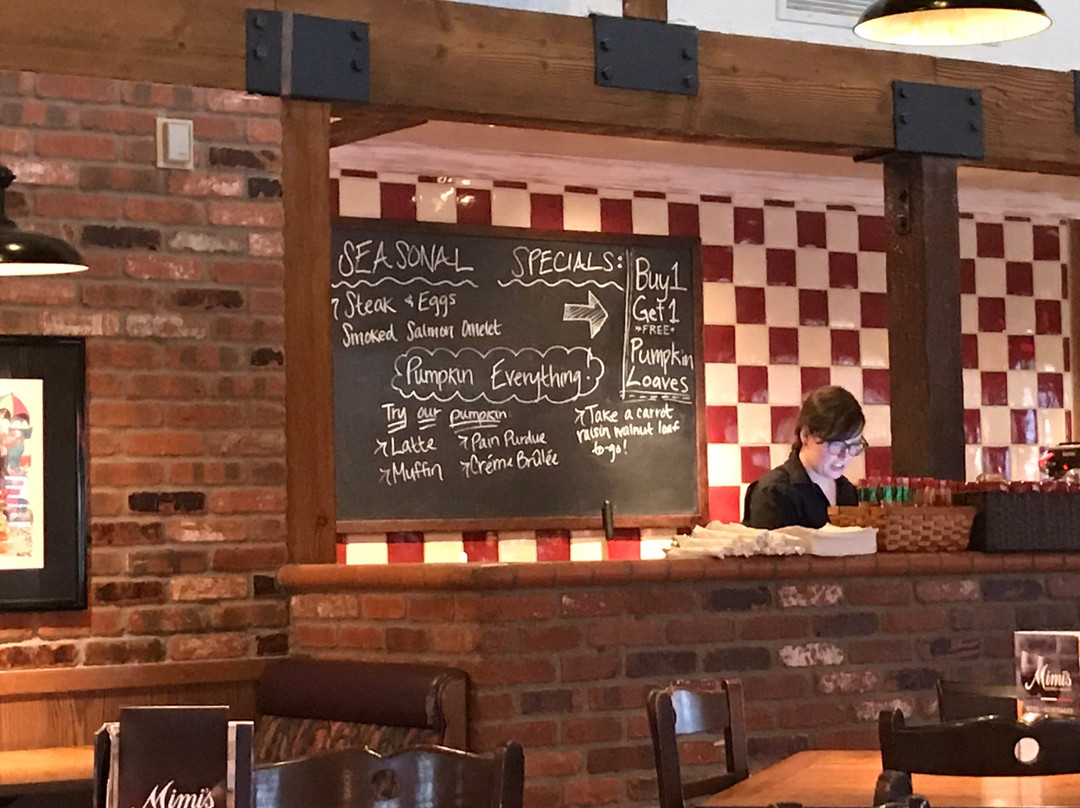 SEASONAL SPECIALS:
Steak & Eggs
Smoked Salmon Omelet
Pumpkin Everything!
Try our pumpkin:
Latte
Muffin
Pain Purdue
Créme Brûlée
Buy 1
Get 1
*FREE*
Pumpkin
Loaves
Take a carrot
raisin walnut loaf
to-go!
Mimi's
Mimi's